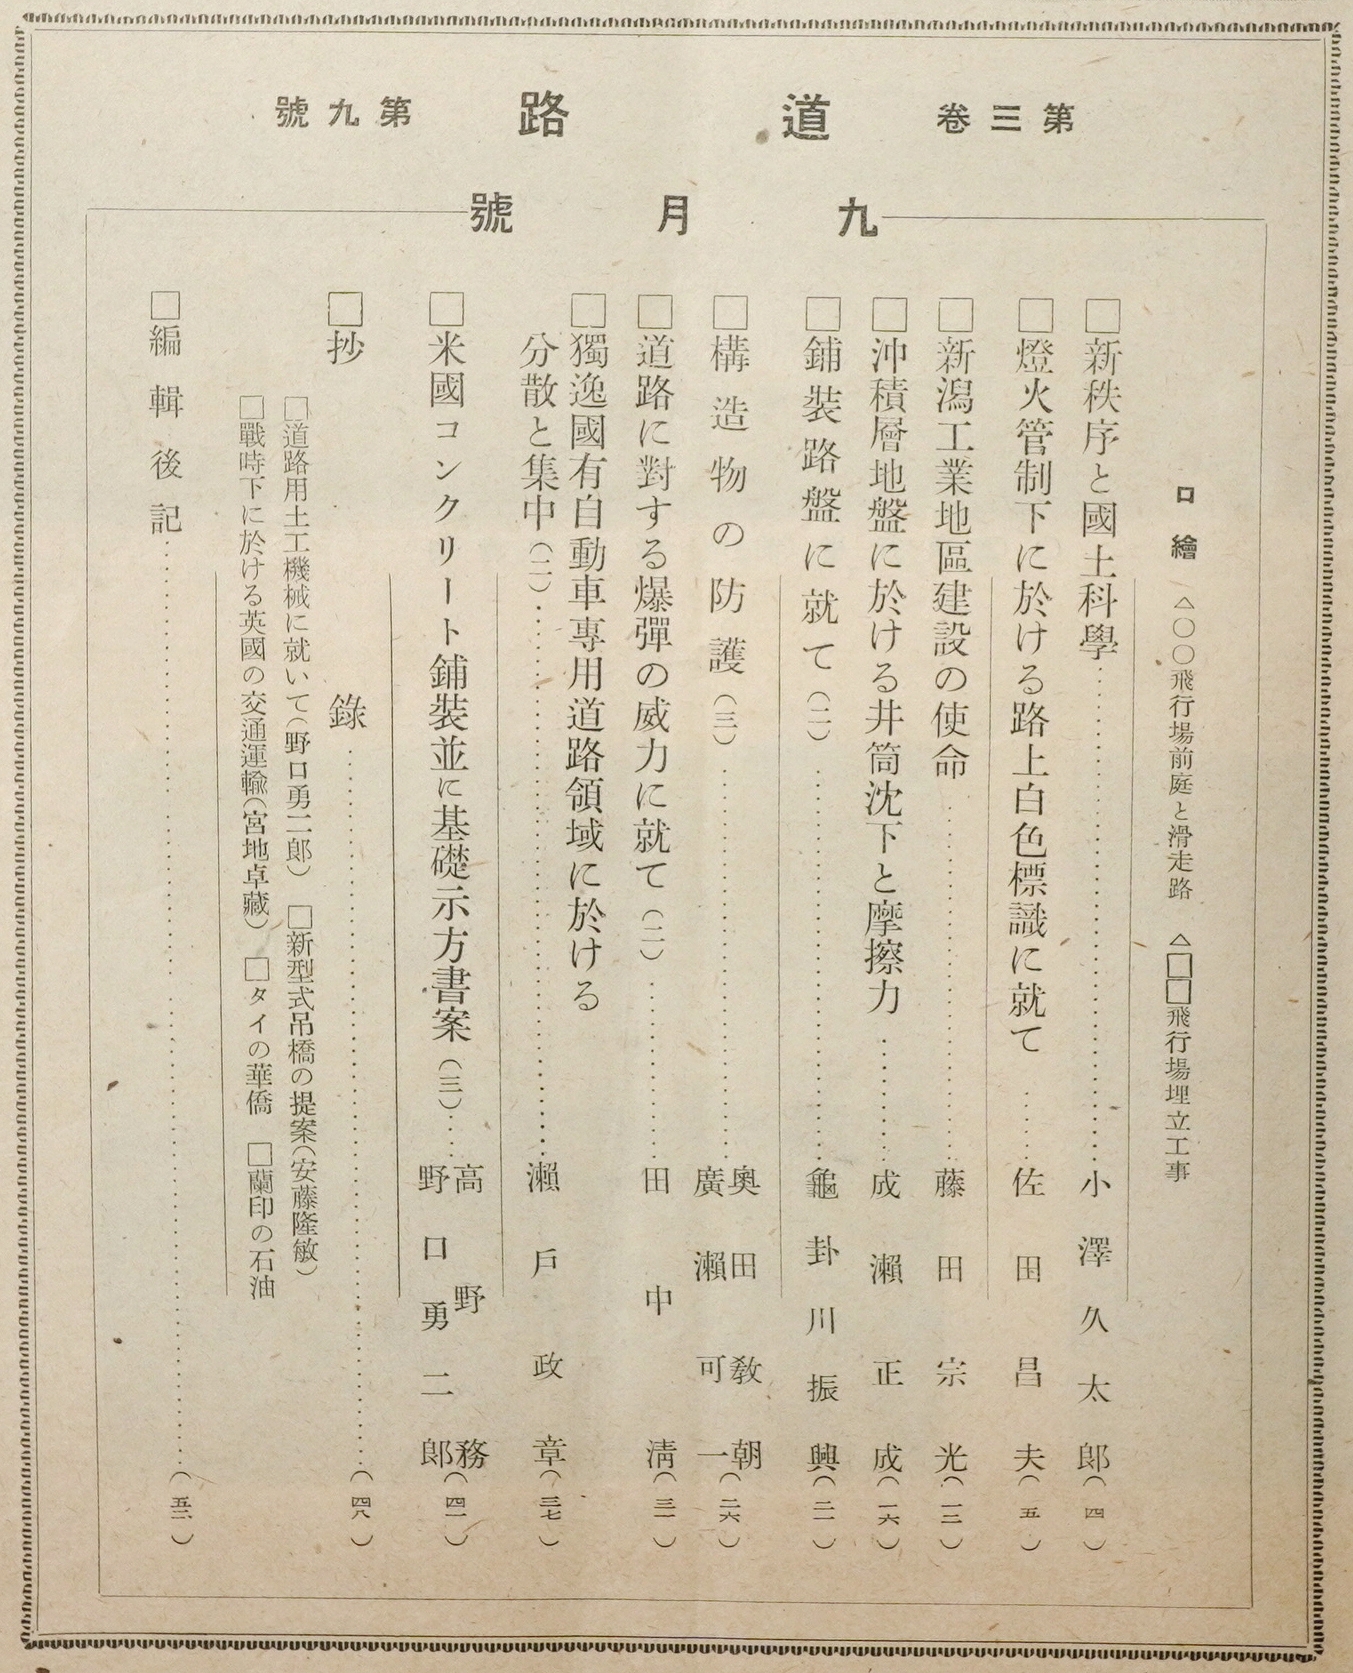 第三卷 道路 第九號
九月號
口繪 △〇〇飛行場前庭と滑走路 △□□飛行場埋立工事
□新秩序と國土科學…………小澤久太郎(四)
□燈火管制下に於ける路上白色標識に就て……佐田昌夫(五)
□新潟工業地區建設の使命…………藤田宗光(一二)
□沖積層地盤に於ける井筒沈下と摩擦力……成瀬正成(一六)
□鋪裝路盤に就て(二)…………龜卦川振興(二一)
□構造物の防護(三)…………奥田教朝
廣瀬可一(二六)
□道路に對する爆彈の威力に就て(二)…………田中清(三一)
□獨逸國有自動車專用道路領域に於ける
分散と集中(二)…………瀬戸政章(三七)
□米國コンクリート鋪裝並に基礎示方書案(三)……高野務
野口勇二郎(四一)
□抄錄…………(四八)
□道路用土工機械に就いて(野口勇二郎) □新型式吊橋の提案(安藤隆敏)
□戰時下に於ける英國の交通運輸(宮地卓藏) □タイの華僑 □蘭印の石油
□編輯後記…………(五二)